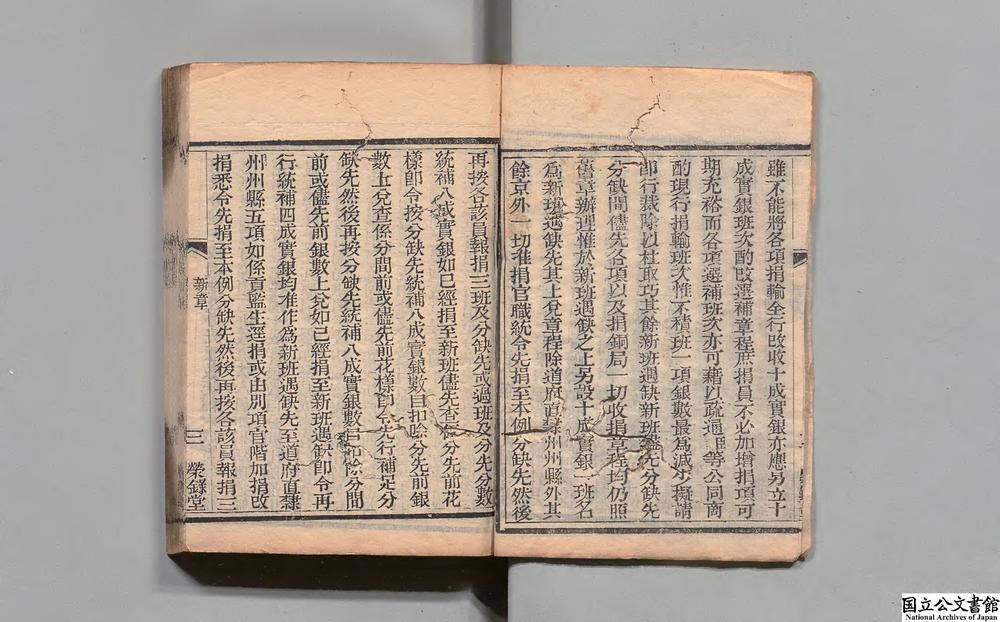 雖不能將各項捐輸全行改收十成實銀亦應另立十
成實銀班次酌改選補章程庶捐員不必加增捐項可
期充裕而各項選補班次亦可藉以疏通臣等公同商
酌現行捐輸班次惟不積班一項銀數最為減少擬請
即行裁除以杜取巧其餘新班遇缺新班儘先分缺先
分缺間儘先各項以及捐銅局一切收捐章程均仍照
舊章辦理惟於新班遇缺之上另設十成實銀一班名
為新班遇缺先其上兌章程除道府直隸州州縣外其
餘京外一切准捐官職統令先捐至本例分缺先然後
再按各該員報捐三班及分缺先或過班及分先分數
統補八成實銀如已經捐至新班儘先查係分先前花
樣即令按分缺先統補八成實銀數目扣除分先前銀
數上兌查係分間前或儘先前花樣即令先行補足分
缺先然後再按分缺先統補八成實銀數目扣除分間
前或儘先前銀數上兌如已經捐至新班遇缺即令再
行統補四成實銀均准作為新班遇缺先至道府直隸
州州縣五項如係貢監生逕捐或由別項官階加捐改
捐悉令先捐至本例分缺先然後再按各該員報捐三
新章
三
榮錄堂
国立公文書館
National Archives of Japan